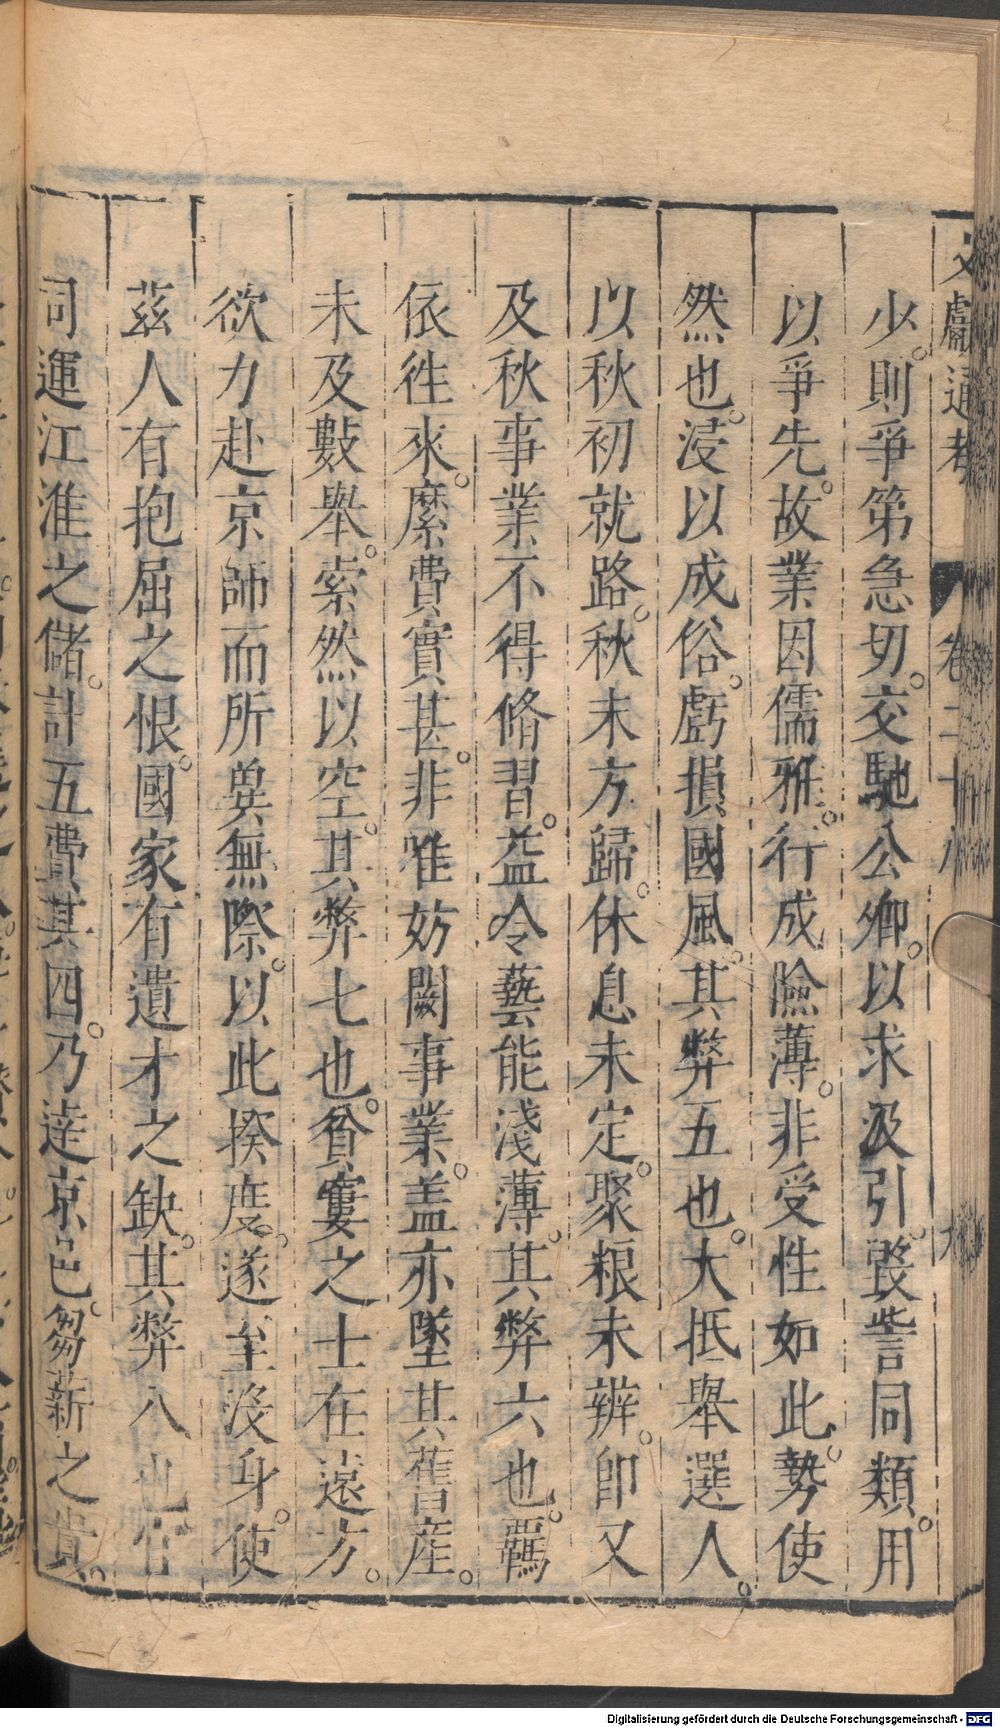 文獻通考 卷二十八 九
少。則爭第急切。交馳公卿。以求汲引。毀訾同類。用
以爭先。故業因儒雅。行成險薄。非受性如此。勢使
然也。浸以成俗。虧損國風。其弊五也。大抵舉選人。
以秋初就路。秋末方歸。休息未定。聚粮未辨。即又
及秋事業不得脩習。益令藝能淺薄。其弊六也。羈
依徃來。縻費實甚。非唯妨闕事業。盖亦墜其舊產。
未及數舉。索然以空。其弊七也。貧窶之士在遠方。
欲力赴京師而所兾無際。以此揆度。遂至沒身。使
茲人有抱屈之恨。國家有遺才之缺。其弊八也官
司運江淮之儲。計五費其四。乃達京邑。芻薪之貴。
Digitalisierung gefördert durch die Deutsche Forschungsgemeinschaft - DFG